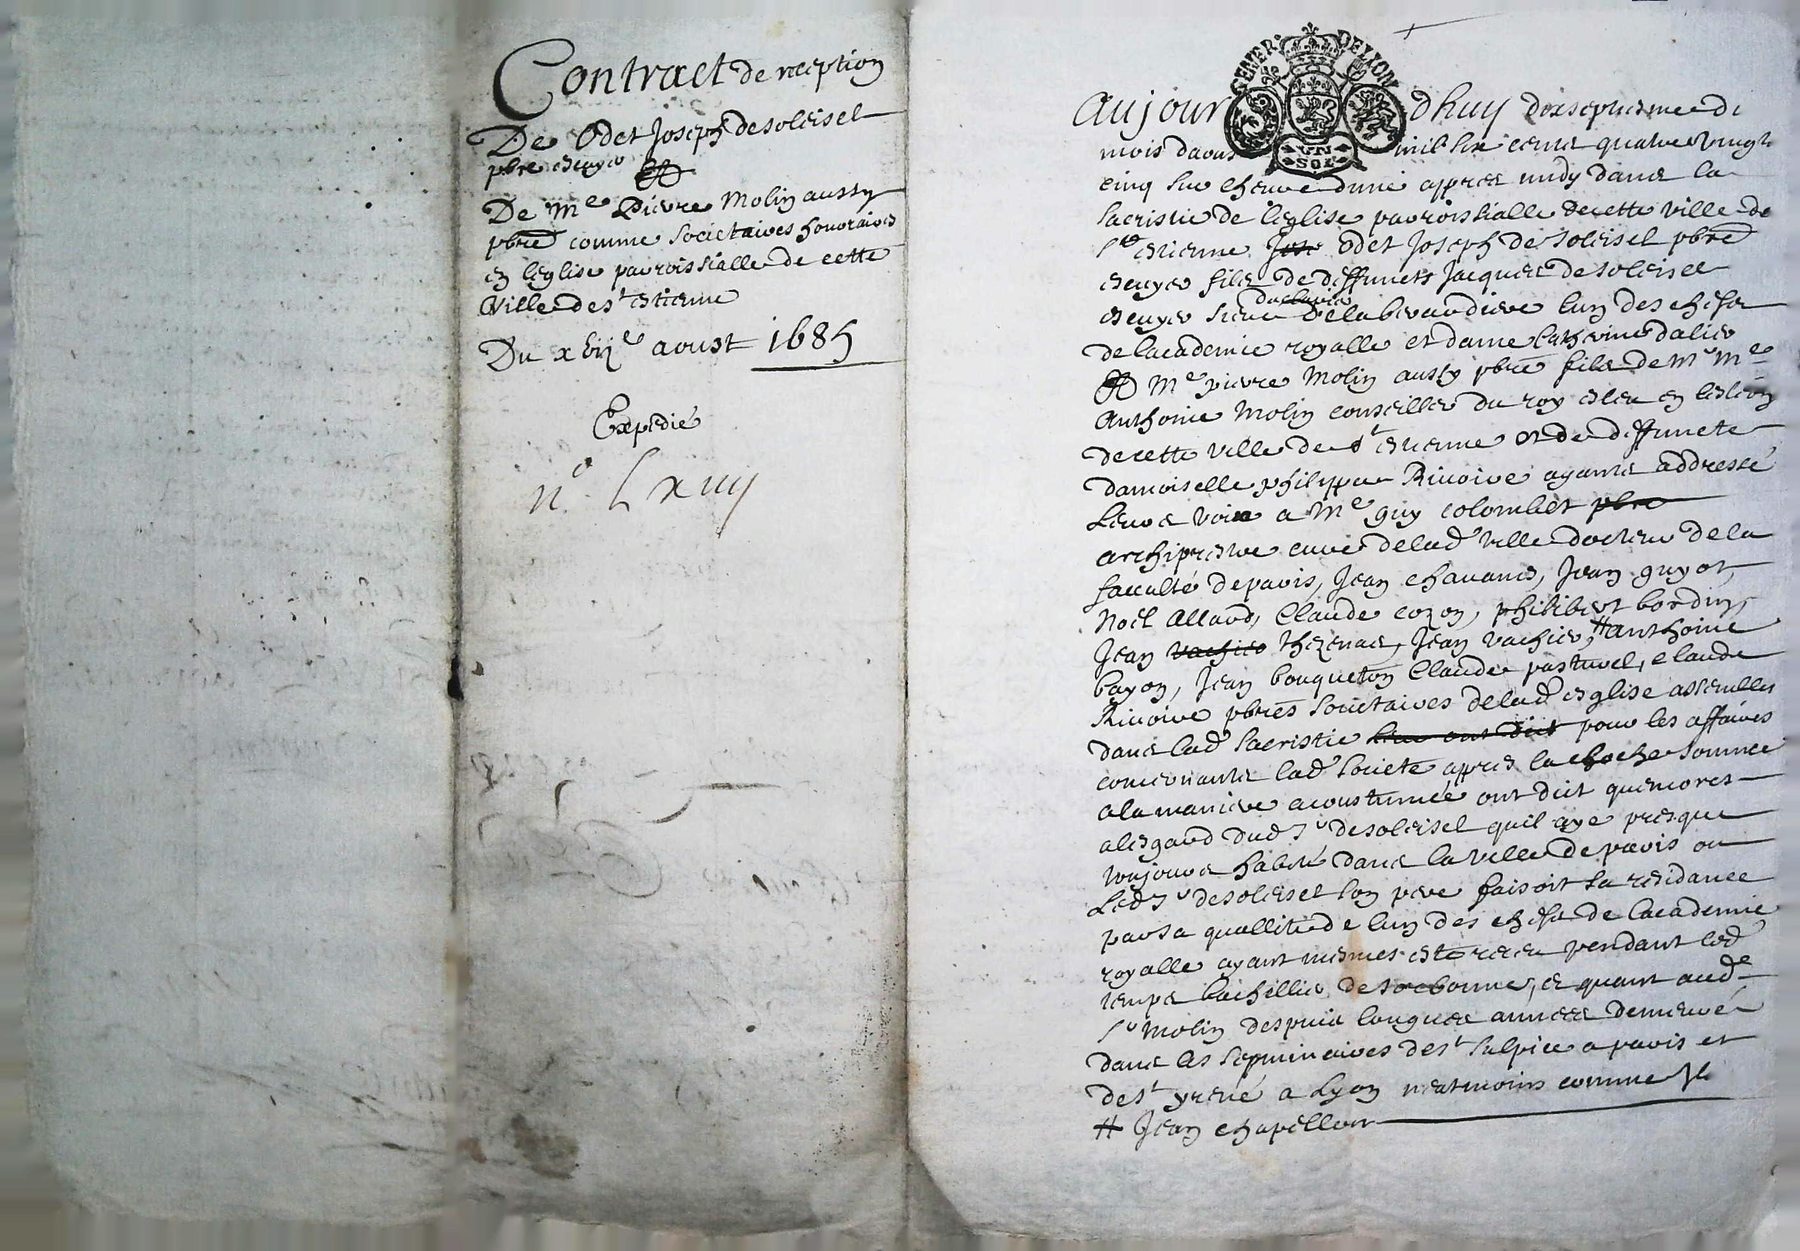 Contract de reception
De Odet Joseph desoleisel
pbre escuyer &
De Me Pierre Molin aussy
pbre comme societaires honoraires
en leglise parroissialle de cette
Ville de st estienne
Du xvije aoust 1685
Expedié
no Lxviij
GENER DE LYON
UN SOL
Aujourdhuy dixseptiesme du
mois daoust mil six cents quatre vingts
cinq sur lheure dune appres midy dans la
sacristie de leglise parroissialle decette ville de
st estienne Jos Odet Joseph de soleisel pbre
escuyer fils de deffuncts Jacques de soleisel
escuyer sieur duclapier delaberaudiere lun des chefs
de lacademie royalle et dame Catherine dalier
& Me pierre Molin aussy pbre fils de Mr Me
Anthoine Molin conseiller du roy esleu en leslection
decette ville de st estienne et de deffuncte
damoiselle philippe Rivoire ayants addressé
Leurs voix a Me guy colombet pbre
archiprestre curé delad ville docteur de la
faculté deparis, Jean chavanes, Jean guyot,
Noel Allard, Claude cozon, philibert bordin,
Jean vachier thezenas, Jean vachier, # anthoine
bayon, Jean bouqueton Claude pasturel, claude
Rivoire pbres societaires delad esglise assemblés
dans lad sacristie leur ont dict pour les affaires
concernants lad societé appres la cloche sonnee
a la maniere acoustumée ont dict quencores
alesgard dud sr desoleisel quil aye presque
toujours habité dans la ville de paris ou
Led sr desoleisel son pere faisoit sa residance
par sa quallité de lun des chefs de lacademie
royalle ayant mesmes esté receu pendant led
temps bachellier de sorbonne, et quant aud
sr Molin despuis longues annees demeuré
dans les seminaires de st sulpice a paris et
de st yrené a Lyon neatmoins comme Jl
# Jean chapellon